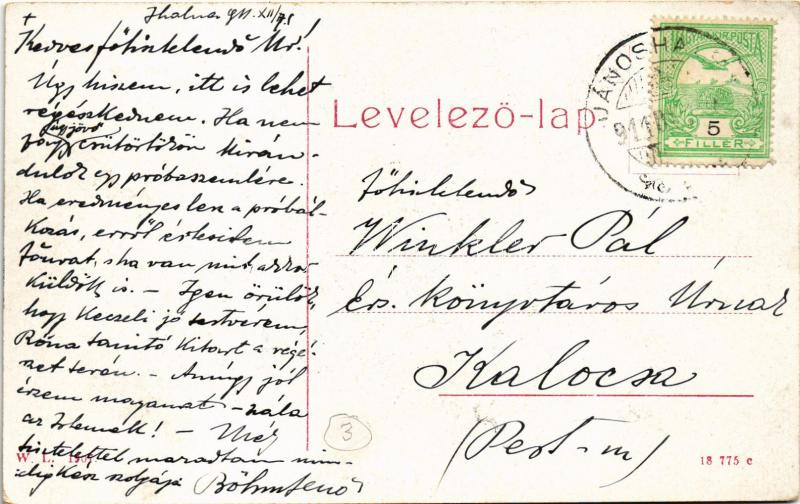 +
Jhalna. 911. XII/7.
Kedves főtisztelendő Úr!
Úgy hiszem, itt is lehet
régészkednem. Ha nem
fagy, jövő
csütörtökön kirán-
dulok egy próbaszemlére.
Ha eredményes lesz a próbál-
kozás, erről értesitem
Főurat, s ha van mit, akkor
küldök is. – Igen örülök,
hogy Keczeli jó testvérem,
Róna tanitó kitart a régé-
szet terén. – Amúgy jól
érzem magamat – hála
az Istennek! – Mély
tisztelettel maradtam min-
dig kész szolgája Böhm Jenő
W. L. 190
3
Levelező-lap.
JÁNOSHA
911
MAGYAR KIR. POSTA
5
FILLÉR
Főtisztelendő
Winkler Pál
érs. könyvtáros Úrnak
Kalocsa
(Pest-m)
18 775 c